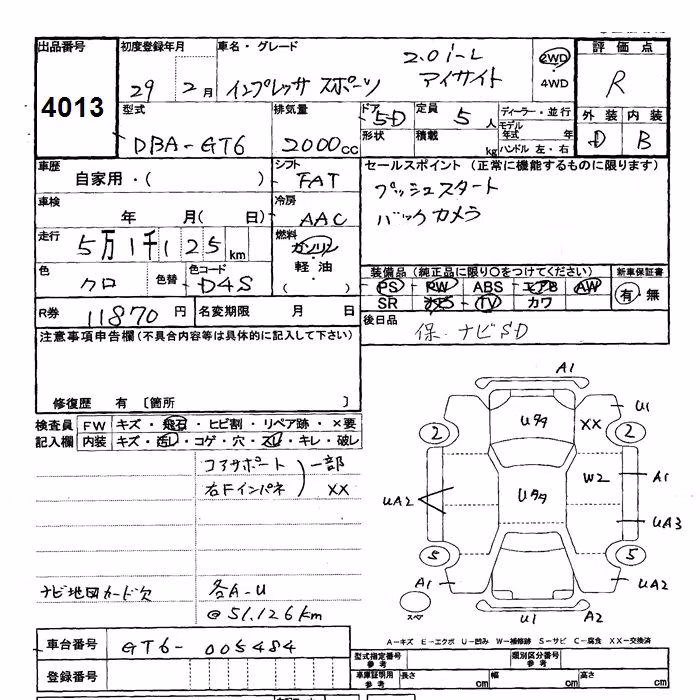 出品番号 初度登録年月 車名・グレード 2.0i-L 2WD 評価点
4013 29 2月 インプレッサ スポーツ アイサイト 4WD R
型式 排気量 ドア 5D 定員 5人 ディーラー・並行 外装 内装
DBA-GT6 2000cc 形状 積載 kg モデル年式 年 D B
ハンドル 左・右
車歴 シフト セールスポイント (正常に機能するものに限ります)
自家用・( ) FAT プッシュスタート
車検 冷房 バックカメラ
年 月( 日) AAC
走行 燃料
5万1千125km ガソリン
軽油
色 色替 色コード 装備品 (純正品に限り○をつけてください) 新車保証書
クロ D4S PS PW ABS エアB AW 有・無
SR TV カワ
R券 11870円 名変期限 月 日 後日品
保・ナビSD
注意事項申告欄(不具合内容等は具体的に記入して下さい)
修復歴 有 〔箇所 〕
検査員 FW キズ・飛石・ヒビ割・リペア跡・×要
記入欄 内装 キズ・汚レ・コゲ・穴・スレ・キレ・破レ
コアサポート 一部
右Fインパネ XX
ナビ地図カード欠 各A-U
@51,126km
A1
U1
XX
Uタタ
2 2
W2
A1
UA2
Uタタ
UA3
5 5
A1
UA2
スペア
U1
A2
A-キズ E-エクボ U-凹み W-補修跡 S-サビ C-腐食 XX-交換済
車台番号 GT6-005484
型式指定番号 参考 類別区分番号 参考
登録番号
車庫証明用 参考 長さ cm 幅 cm 高さ cm